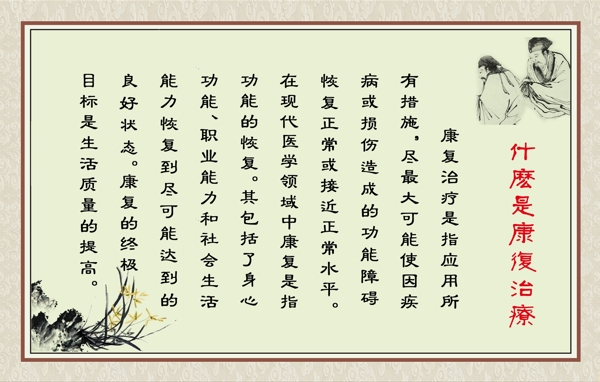 什麽是康復治療
康复治疗是指应用所
有措施，尽最大可能使因疾
病或损伤造成的功能障碍
恢复正常或接近正常水平。
在现代医学领域中康复是指
功能的恢复。其包括了身心
功能、职业能力和社会生活
能力恢复到尽可能达到的
良好状态。康复的终极
目标是生活质量的提高。